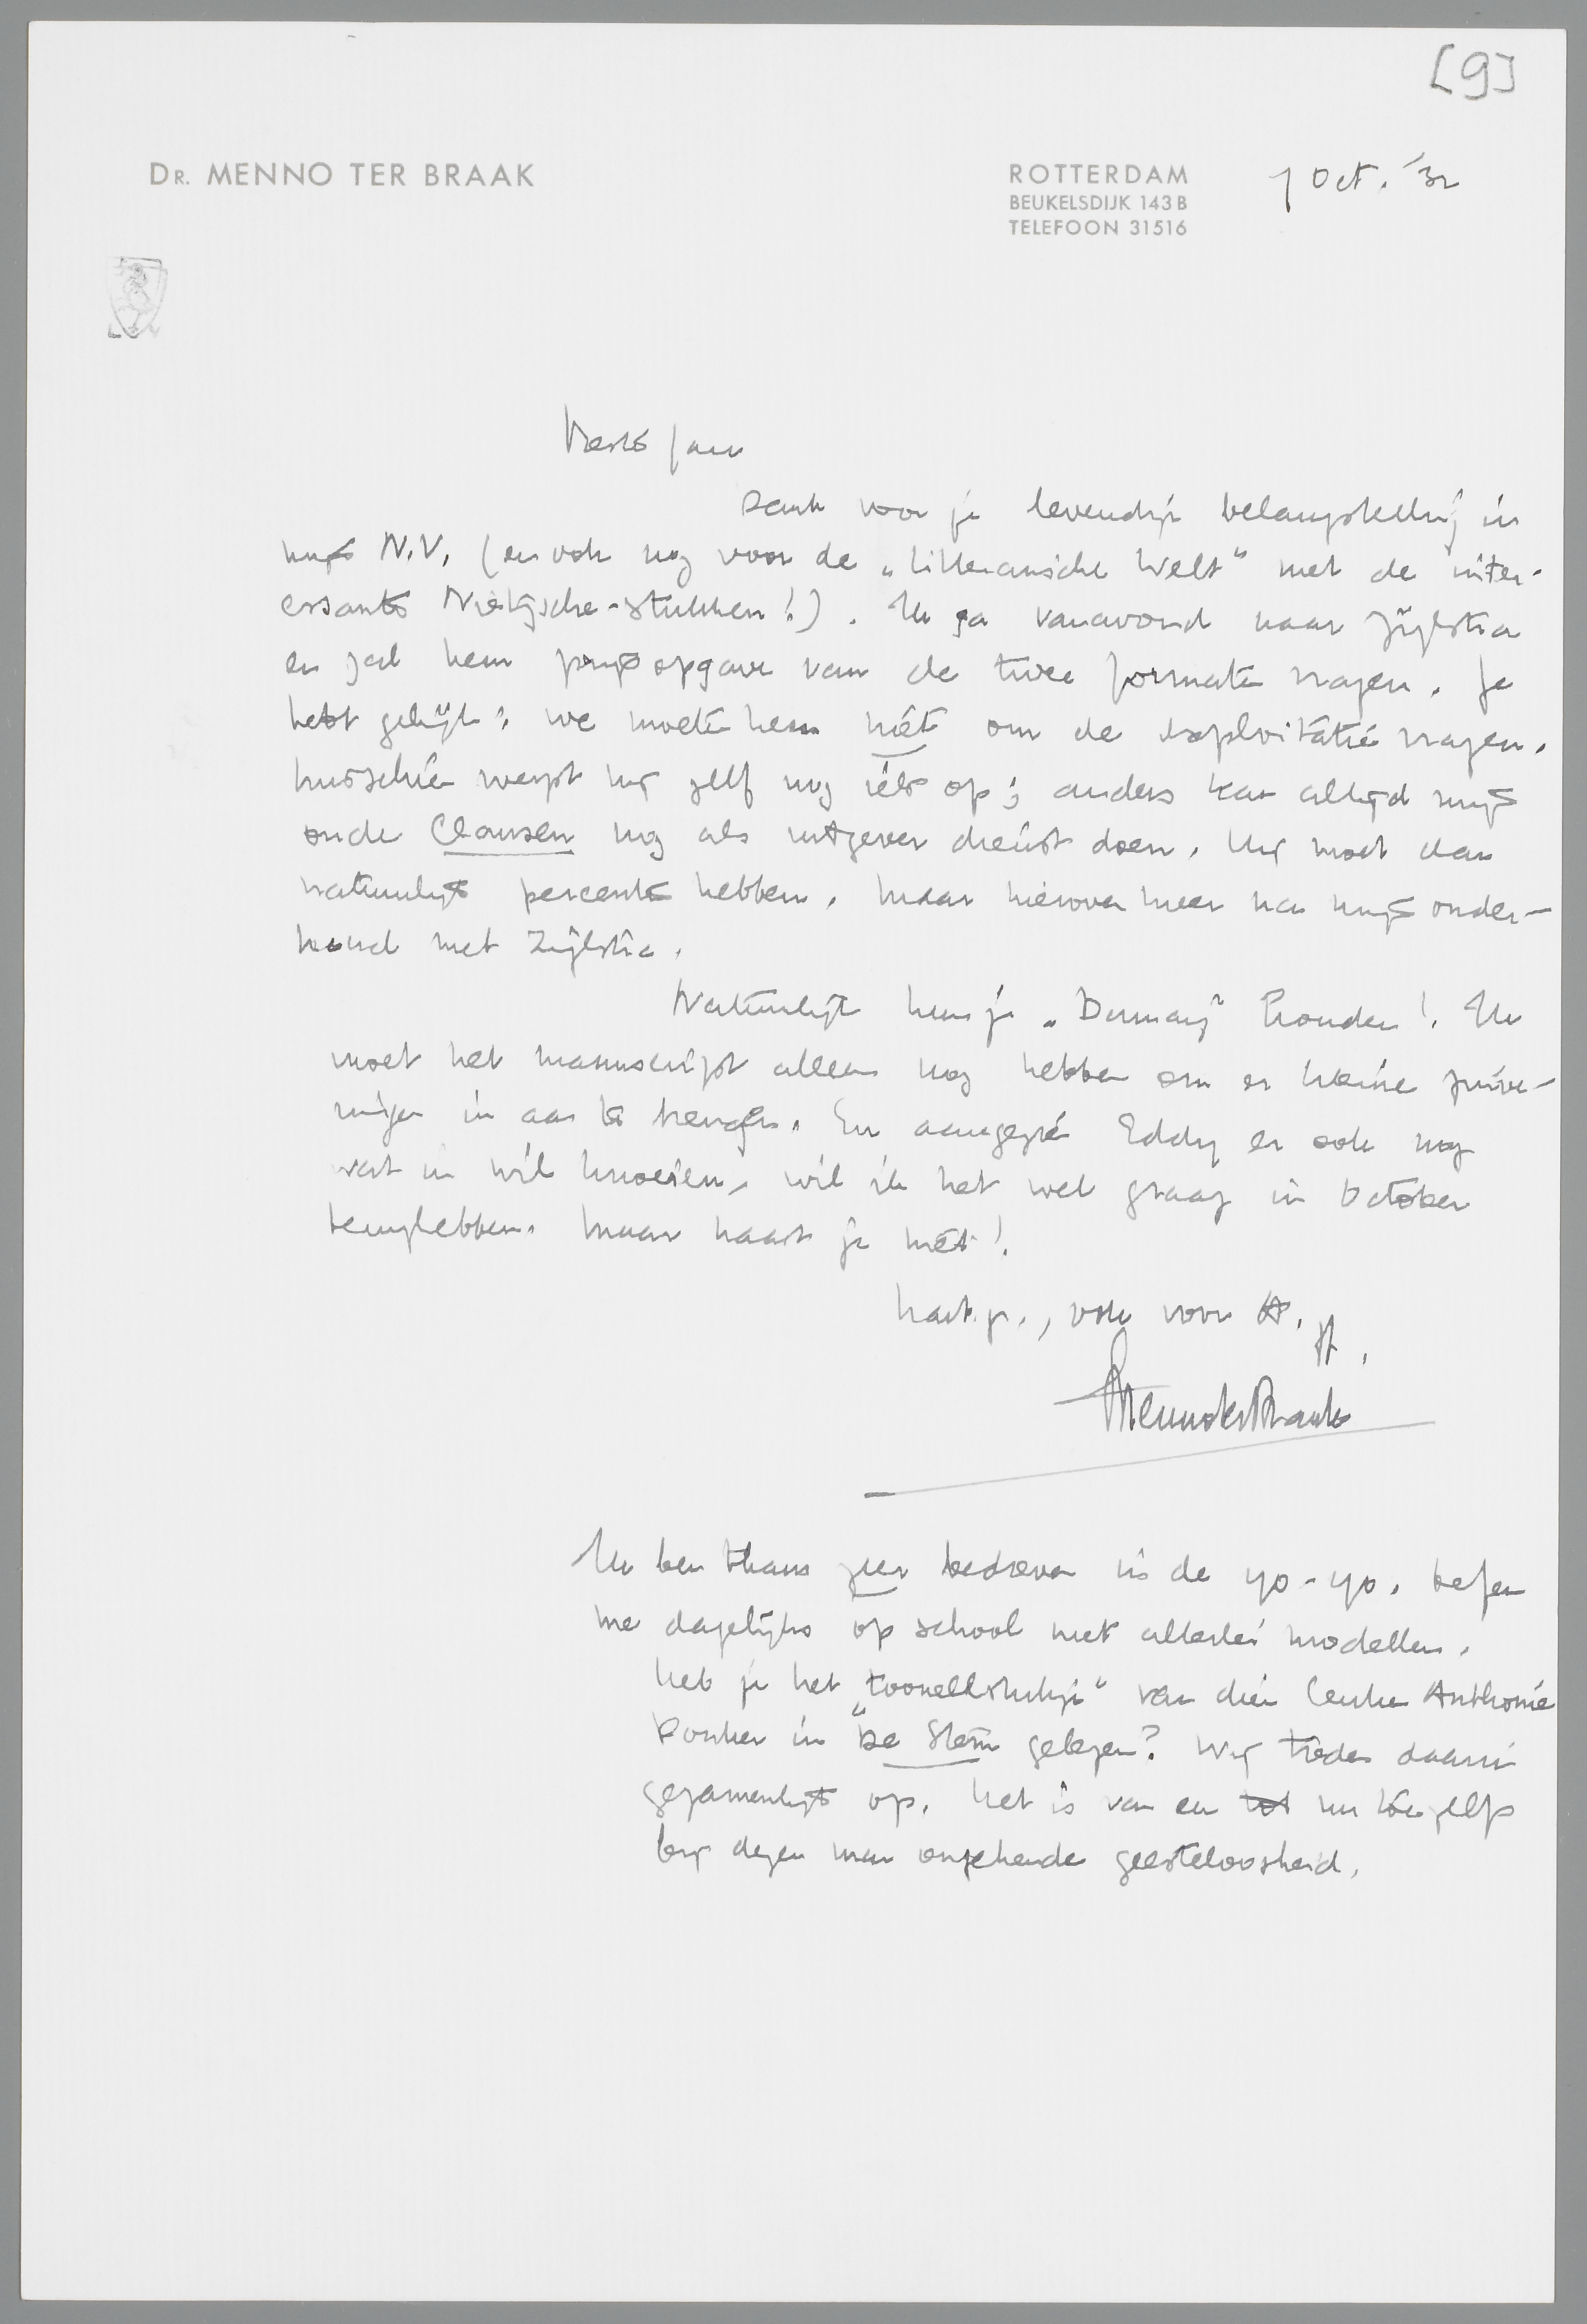 [9]
DR. MENNO TER BRAAK
ROTTERDAM
BEUKELSDIJK 143 B
TELEFOON 31516
7 Oct. '32
Beste Jan
Dank voor je levendige belangstelling in
mijn N.V. (en ook nog voor de „Litterarische Welt" met de inter-
essante Nietzsche-stukken!). Ik ga vanavond naar Zijlstra
en zal hem prijsopgave van de twee formaten vragen. Je
hebt gelijk: we moeten hem niet om de exploitatie vragen.
Misschien werpt hij zelf nog iets op; anders kan altijd mijn
oude Clausen nog als uitgever dienst doen. Hij moet dan
natuurlijk percenten hebben. Maar hierover meer na mijn onder-
houd met Zijlstra.
Natuurlijk kun je „Dumay" houden! Ik
moet het manuscript alleen nog hebben om er kleine zuive-
ringen in aan te brengen. En aangezien Eddy er ook nog
wat in wil knoeien, wil ik het wel graag in October
terughebben. Maar haast je niet!
hart. gr., ook voor A.
je
Menno ter Braak
Ik ben thans zeer bedreven in de yo-yo. Oefen
me dagelijks op school met allerlei modellen.
Heb je het „tooneelstukje" van dien Anthonie
Donker in De Stem gelezen? Wij treden daarin
gezamenlijk op. Het is van een tot nu toe zelfs
bij dezen man ongekende geesteloosheid.